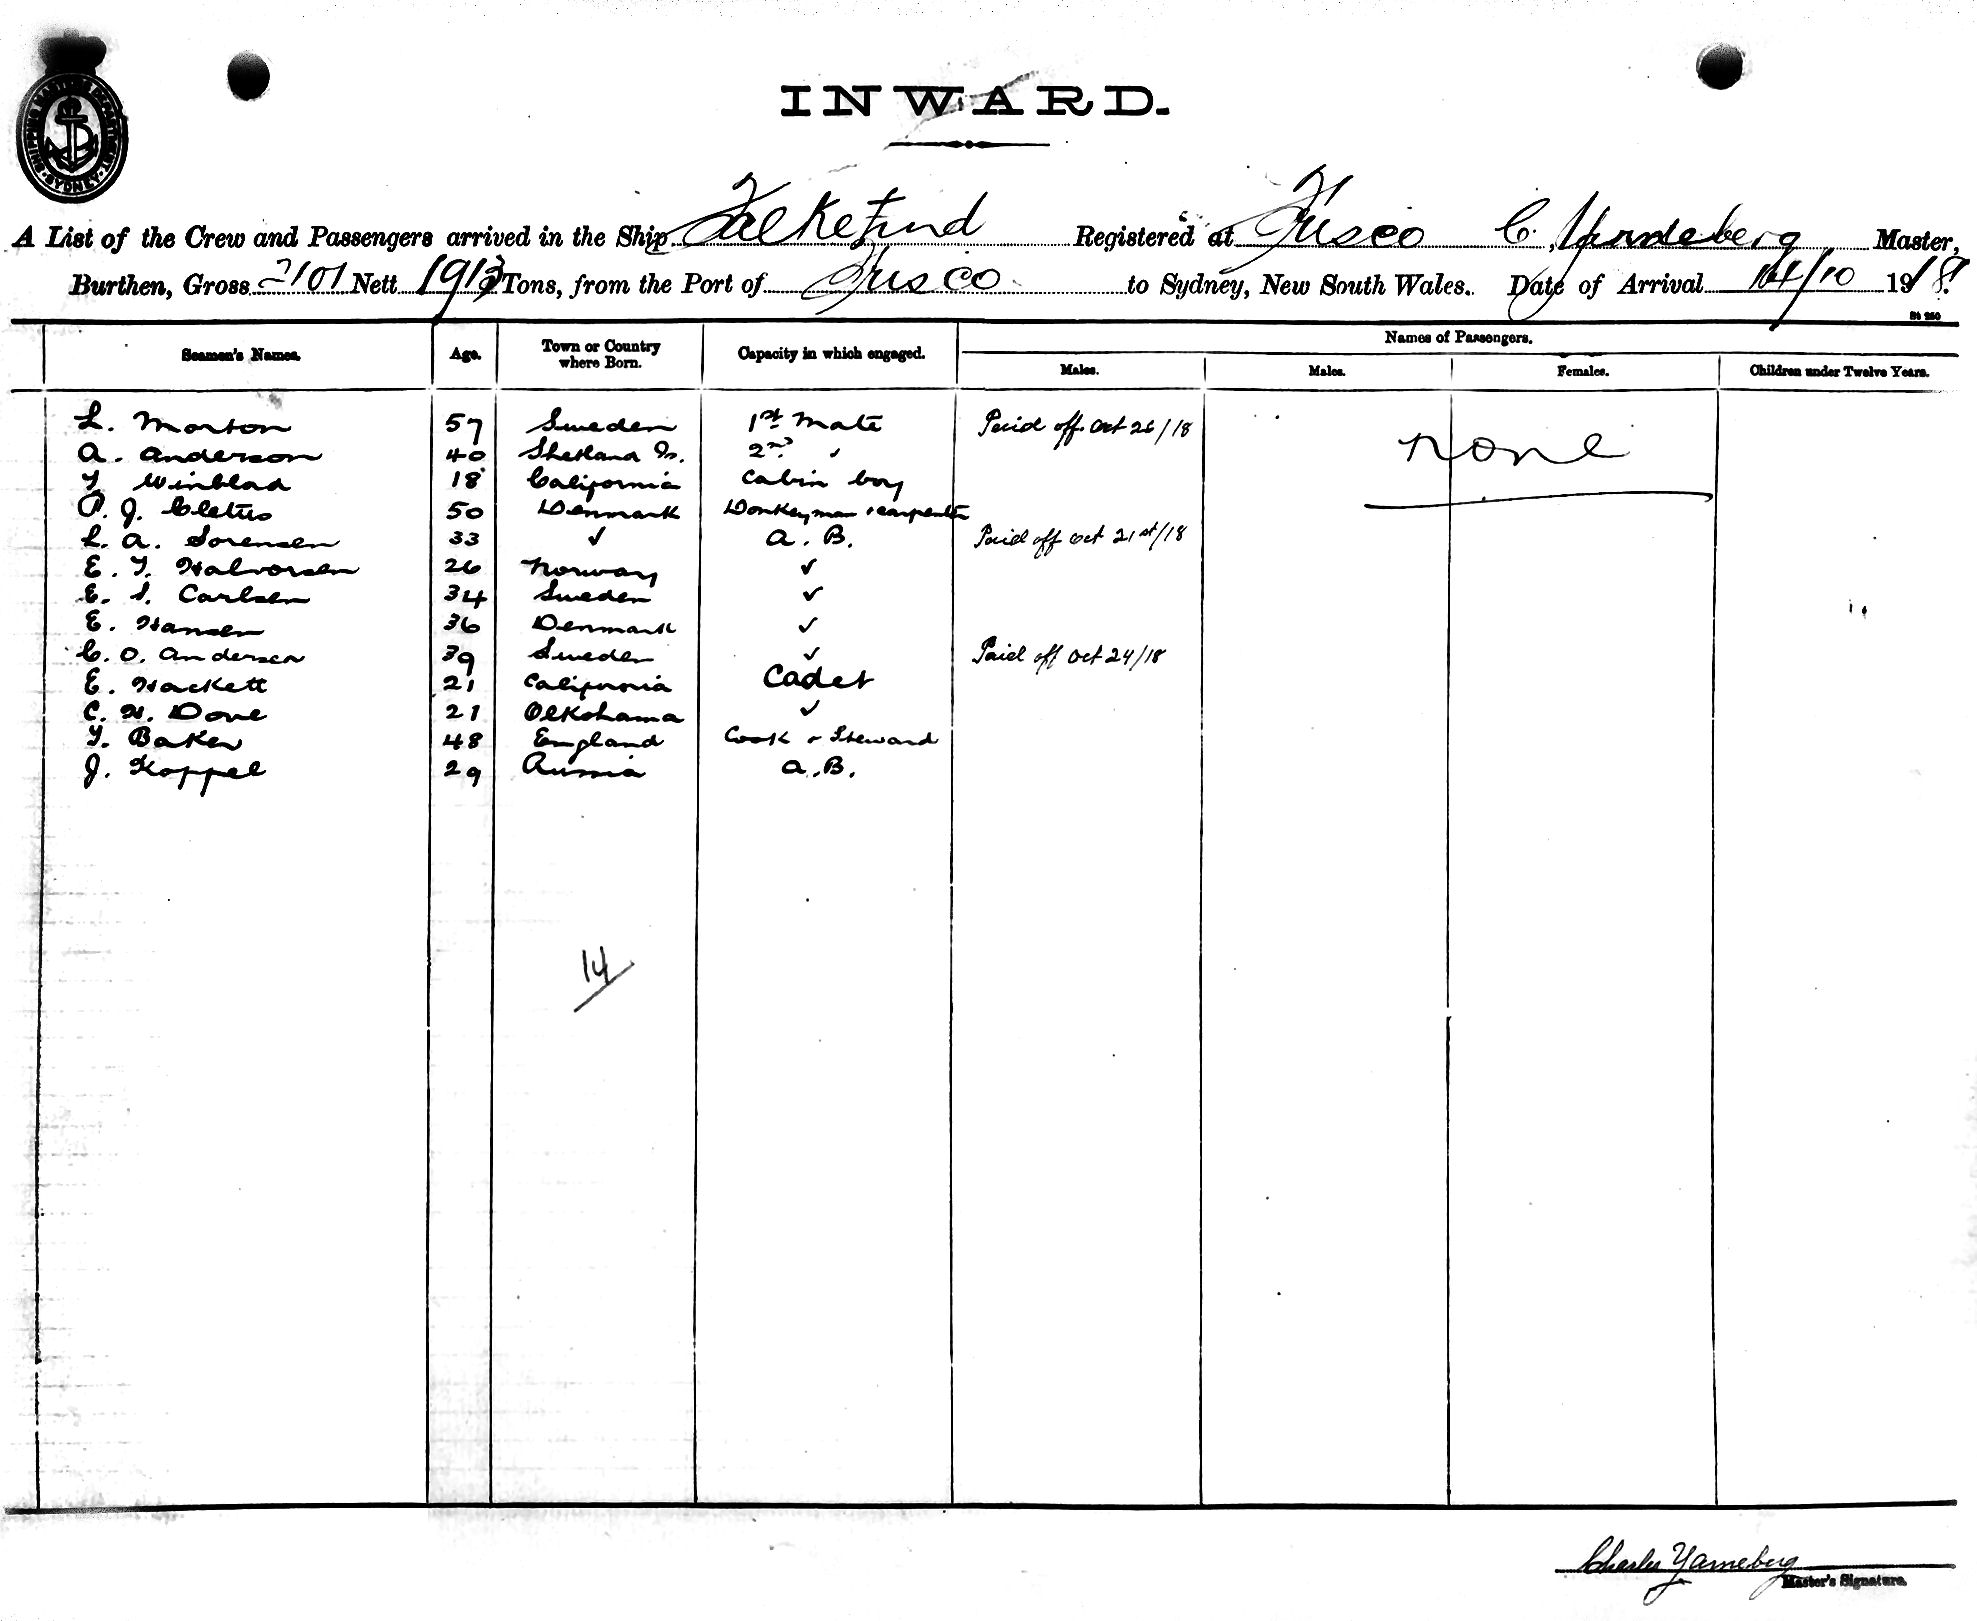 SHIPPING MASTER'S DEPARTMENT SYDNEY
INWARD.
A List of the Crew and Passengers arrived in the Ship Falkefund Registered at Frisco C. Master,
Burthen, Gross 2101 Nett 1913 Tons, from the Port of Frisco to Sydney, New South Wales. Date of Arrival 14/10 1918.
St 250
Seamen's Names. Age. Town or Country where Born. Capacity in which engaged. Names of Passengers.
Males. Males. Females. Children under Twelve Years.
L. Morton 57 Sweden 1st Mate Paid off Oct 26/18 None
A. Anderson 40 Shetland Is. 2nd "
T Winblad 18 California Cabin boy
P. J. Cletus 50 Denmark Donkeyman & carpenter
L. A. Sorensen 33 ✓ A. B. Paid off Oct 21st/18
E. T. Halvorsen 26 Norway ✓
E. S. Carlsen 34 Sweden ✓
E. Hansen 36 Denmark ✓
C. O. Andersen 39 Sweden ✓ Paid off Oct 24/18
E. Hackett 21 California Cadet
C. H. Dove 21 Olkohama ✓
T. Baker 48 England Cook & Steward
J. Koppel 29 Russia A.B.
14
Charles Yarneberg
Master's Signature.